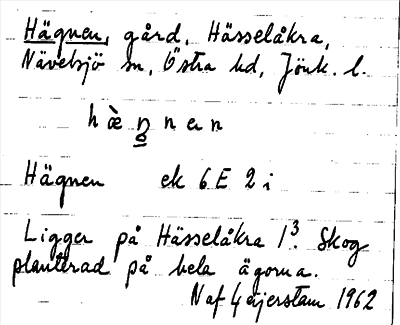 Hägnen, gård, Hässelåkra,
Nävelsjö sn, Östra hd, Jönk. l.
Hägnen ek 6 E 2 i
Ligger på Hässelåkra 1³. Skog
planterad på hela ägorna.
Naf Geijerstam 1962